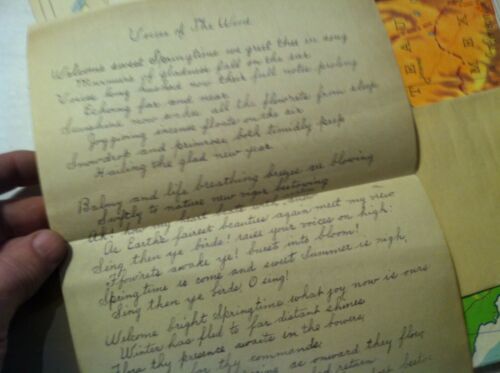 Voices of The Wood.
Welcome sweet Springtime we greet thee in song
Murmurs of gladness fall on the ear
Voices long hushed now their full notes prolong
Echoing far and near
Sunshine now wakes all the flow'rets from sleep
Joy giving incense floats on the air
Snowdrop and primrose both timidly peep
Hailing the glad new year
Balmy and life breathing breezes are blowing
Swiftly to nature new vigor bestowing
Ah! how my heart beats with
As Earth's fairest beauties again meet my view
Sing then ye birds! raise your voices on high;
Flow'rets awake ye! burst into bloom!
Springtime is come and sweet Summer is nigh,
Sing then ye birds, O sing!
Welcome bright Springtime what joy now is ours
Winter has fled to far distant shines
How thy presence awaits in the bowers,
for thy commands
as onward they flow,
return
TEXA
MEX